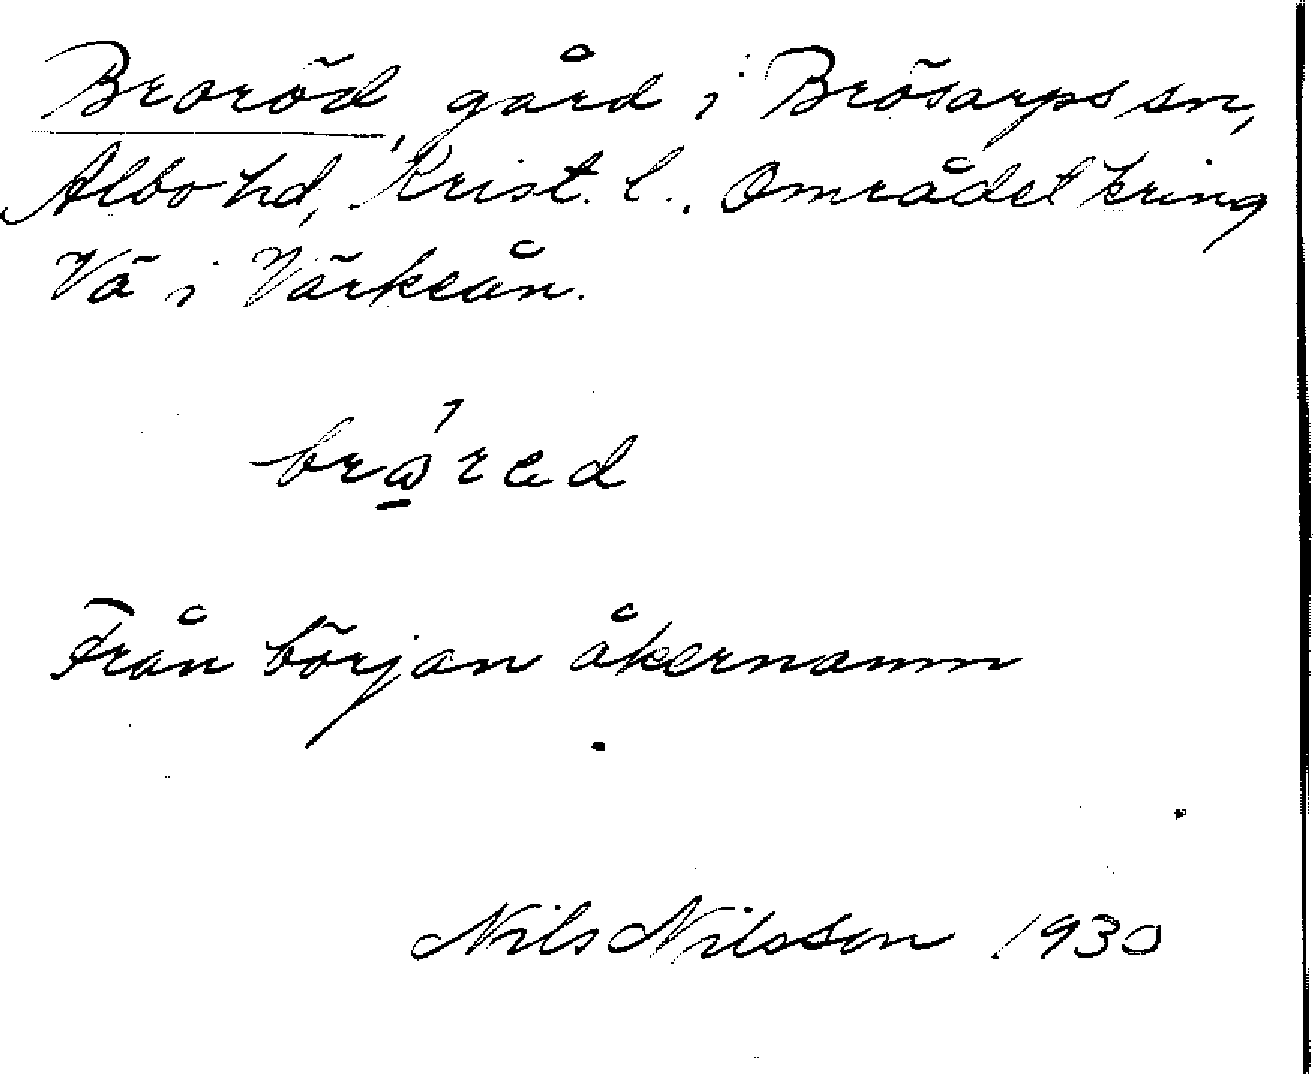 Broröd, gård i Brösarps sn,
Albo hd, Krist. l., området kring
Vä i Värkeån.
Från början åkernamn
Nils Nilsson 1930